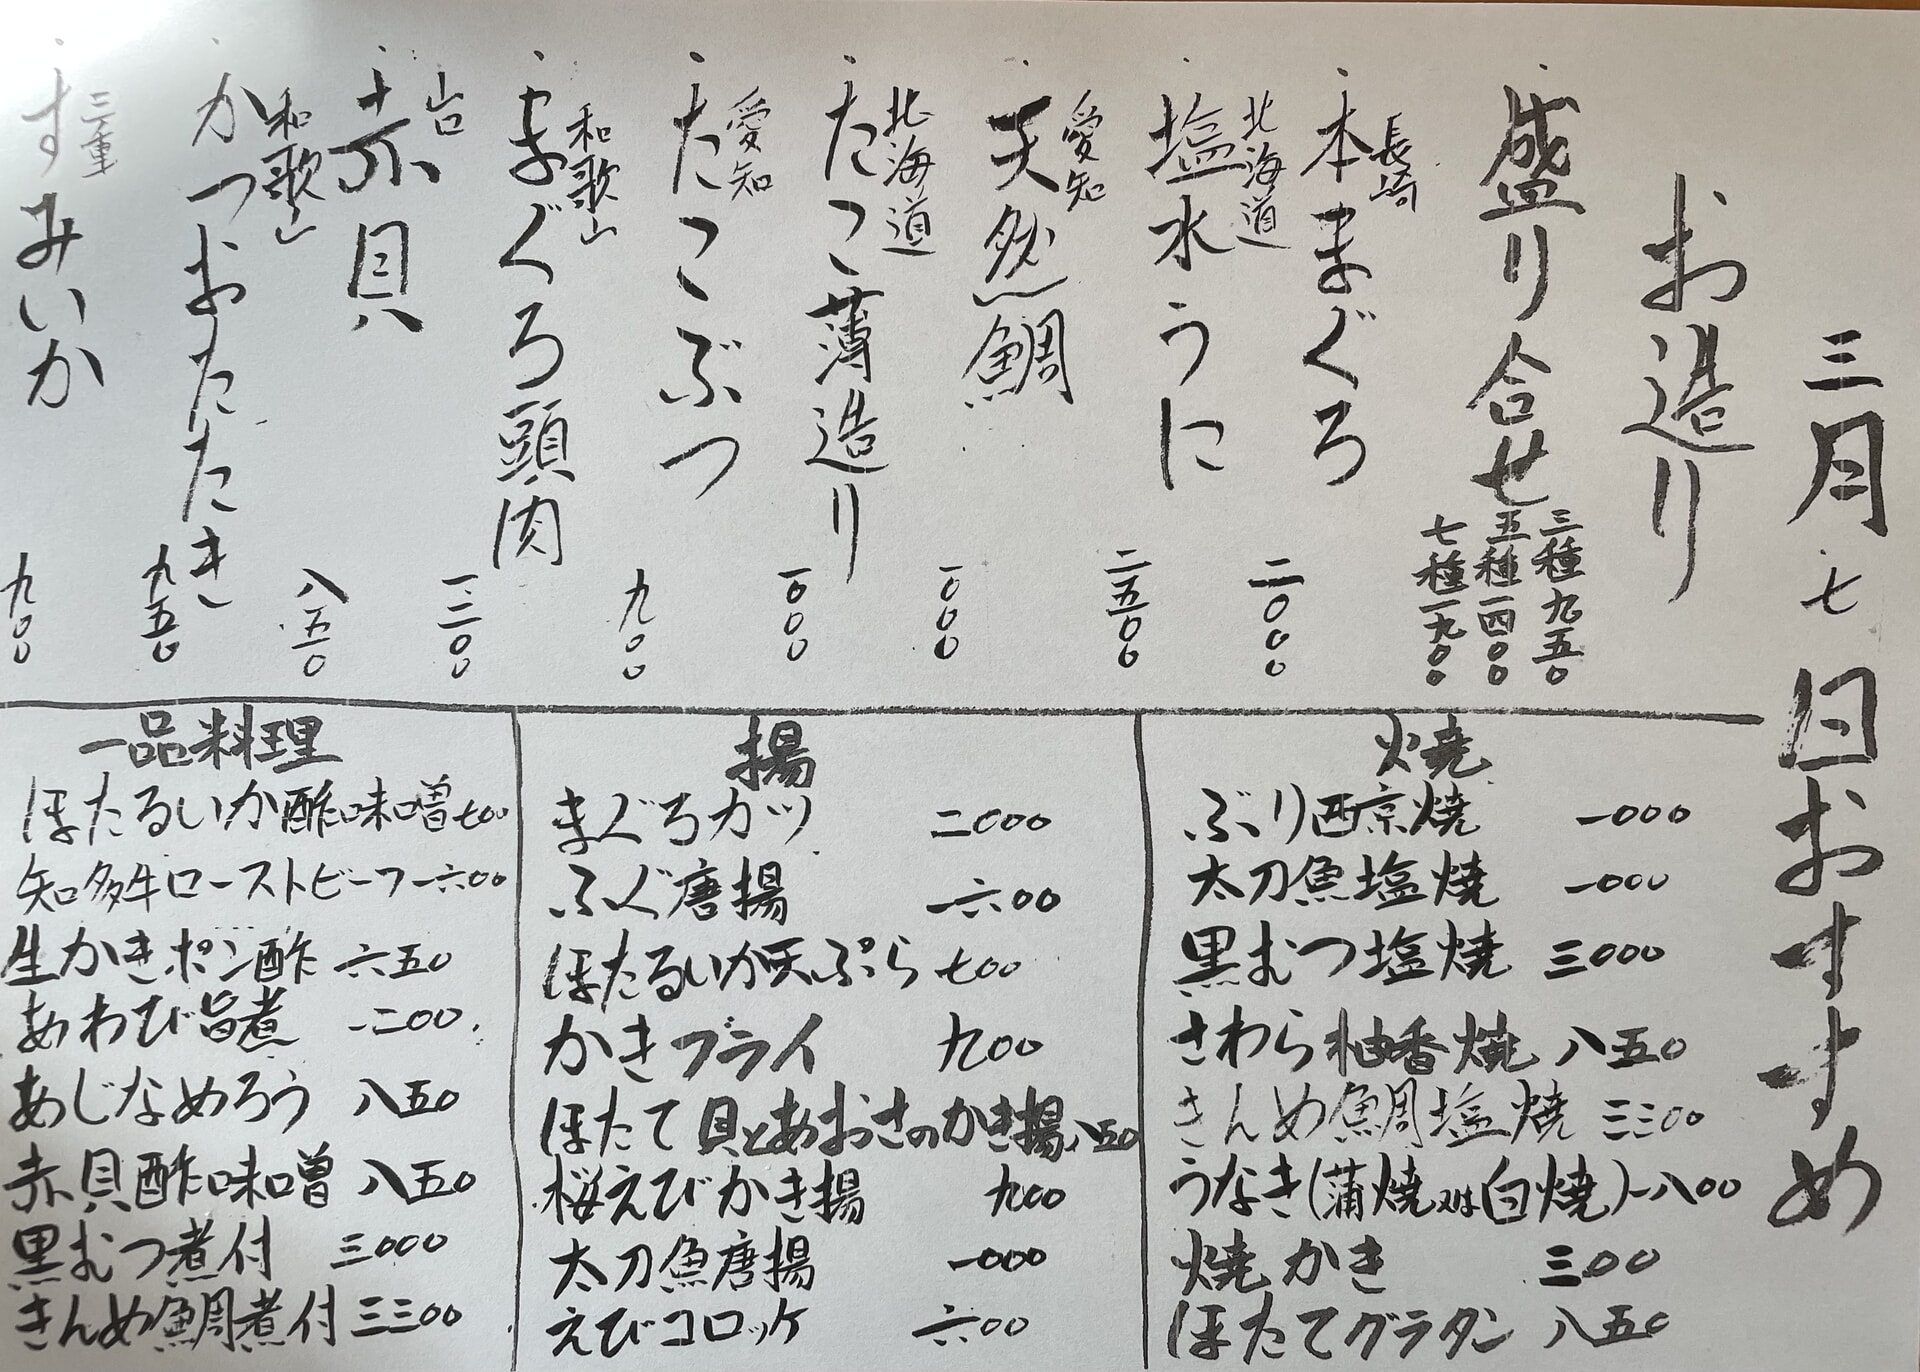 三月七日おすすめ
お造り
盛り合せ
三種 九五〇
五種 一四〇〇
七種 一九〇〇
長崎
本まぐろ 二〇〇〇
北海道
塩水うに 二五〇〇
愛知
天然鯛 一〇〇〇
北海道
たこ薄造り 一〇〇〇
愛知
たこぶつ 九〇〇
和歌山
まぐろ頭肉 一二〇〇
山口
赤貝 八五〇
和歌山
かつおたたき 九五〇
三重
すみいか 九〇〇
焼
ぶり西京焼 一〇〇〇
太刀魚塩焼 一〇〇〇
黒むつ塩焼 三〇〇〇
さわら柚香焼 八五〇
きんめ鯛塩焼 三三〇〇
うなき(蒲焼又は白焼) 一八〇〇
焼かき 三〇〇
ほたてグラタン 八五〇
揚
まぐろカツ 二〇〇〇
ふぐ唐揚 一六〇〇
ほたるいか天ぷら 七〇〇
かきフライ 九〇〇
ほたて貝とあおさのかき揚 八五〇
桜えびかき揚 九〇〇
太刀魚唐揚 一〇〇〇
えびコロッケ 六〇〇
一品料理
ほたるいか酢味噌 七〇〇
知多牛ローストビーフ 一六〇〇
生かきポン酢 六五〇
あわび旨煮 一二〇〇
あじなめろう 八五〇
赤貝酢味噌 八五〇
黒むつ煮付 三〇〇〇
きんめ鯛煮付 三三〇〇